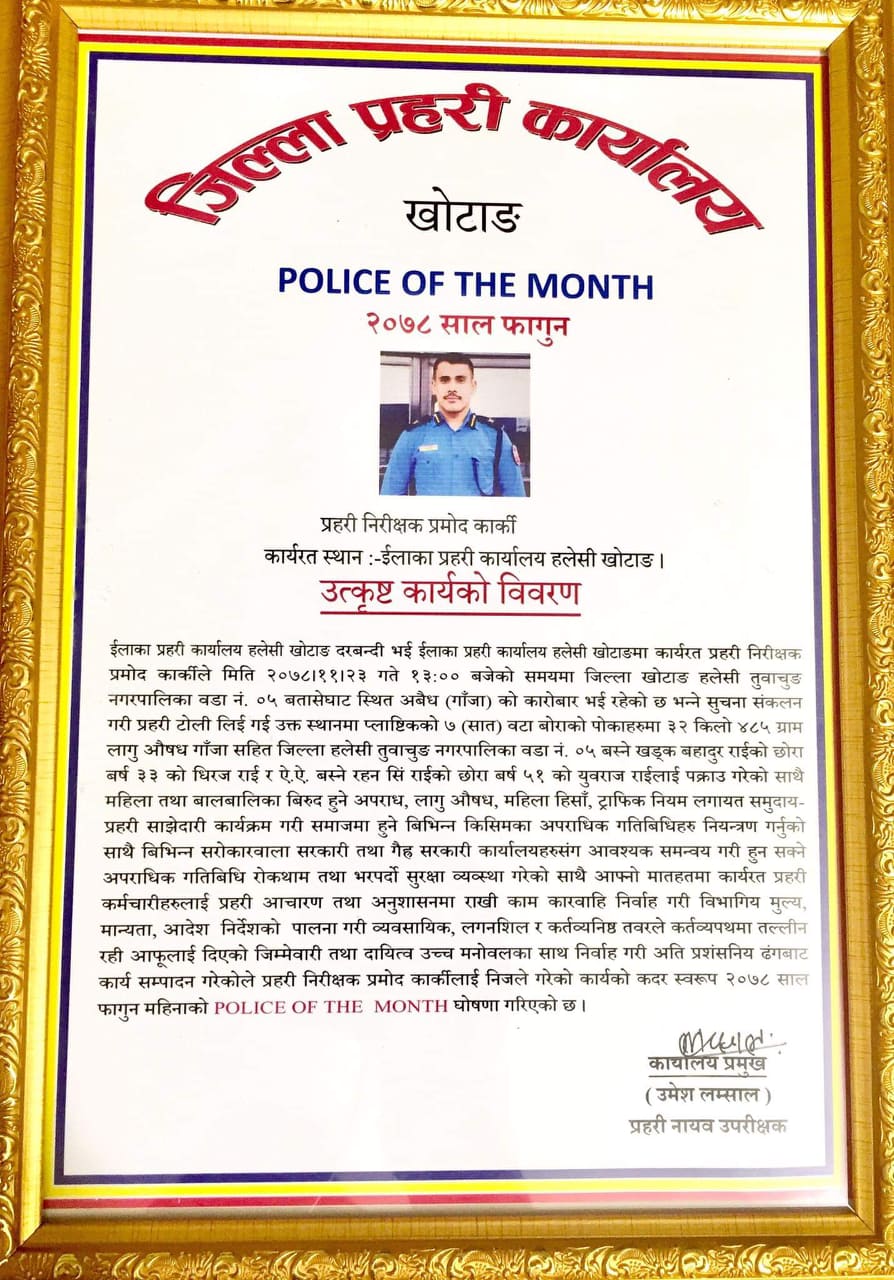 जिल्ला प्रहरी कार्यालय
खोटाङ
POLICE OF THE MONTH
२०७८ साल फागुन
प्रहरी निरीक्षक प्रमोद कार्की
कार्यरत स्थान :-ईलाका प्रहरी कार्यालय हलेसी खोटाङ ।
उत्कृष्ट कार्यको विवरण
ईलाका प्रहरी कार्यालय हलेसी खोटाङ दरबन्दी भई ईलाका प्रहरी कार्यालय हलेसी खोटाङमा कार्यरत प्रहरी निरीक्षक
प्रमोद कार्कीले मिति २०७८।११।२३ गते १३:०० बजेको समयमा जिल्ला खोटाङ हलेसी तुवाचुङ
नगरपालिका वडा नं. ०५ बतासेघाट स्थित अबैध (गाँजा) को कारोबार भई रहेको छ भन्ने सुचना संकलन
गरी प्रहरी टोली लिई गई उक्त स्थानमा प्लाष्टिकको ७ (सात) वटा बोराको पोकाहरुमा ३२ किलो ४८५ ग्राम
लागु औषध गाँजा सहित जिल्ला हलेसी तुवाचुङ नगरपालिका वडा नं. ०५ बस्ने खड्क बहादुर राईको छोरा
बर्ष ३३ को धिरज राई र ऐ.ऐ. बस्ने रहन सिं राईको छोरा बर्ष ५१ को युवराज राईलाई पक्राउ गरेको साथै
महिला तथा बालबालिका बिरुद हुने अपराध, लागु औषध, महिला हिसाँ, ट्राफिक नियम लगायत समुदाय-
प्रहरी साझेदारी कार्यक्रम गरी समाजमा हुने बिभिन्न किसिमका अपराधिक गतिबिधिहरु नियन्त्रण गर्नुको
साथै बिभिन्न सरोकारवाला सरकारी तथा गैह्र सरकारी कार्यालयहरुसंग आवश्यक समन्वय गरी हुन सक्ने
अपराधिक गतिबिधि रोकथाम तथा भरपर्दो सुरक्षा व्यवस्था गरेको साथै आफ्नो मातहतमा कार्यरत प्रहरी
कर्मचारीहरुलाई प्रहरी आचारण तथा अनुशासनमा राखी काम कारवाहि निर्वाह गरी विभागिय मुल्य,
मान्यता, आदेश निर्देशको पालना गरी व्यवसायिक, लगनशिल र कर्तव्यनिष्ठ तवरले कर्तव्यपथमा तल्लीन
रही आफूलाई दिएको जिम्मेवारी तथा दायित्व उच्च मनोवलका साथ निर्वाह गरी अति प्रशंसनिय ढंगबाट
कार्य सम्पादन गरेकोले प्रहरी निरीक्षक प्रमोद कार्कीलाई निजले गरेको कार्यको कदर स्वरूप २०७८ साल
फागुन महिनाको POLICE OF THE MONTH घोषणा गरिएको छ ।
कार्यालय प्रमुख
( उमेश लम्साल )
प्रहरी नायव उपरीक्षक